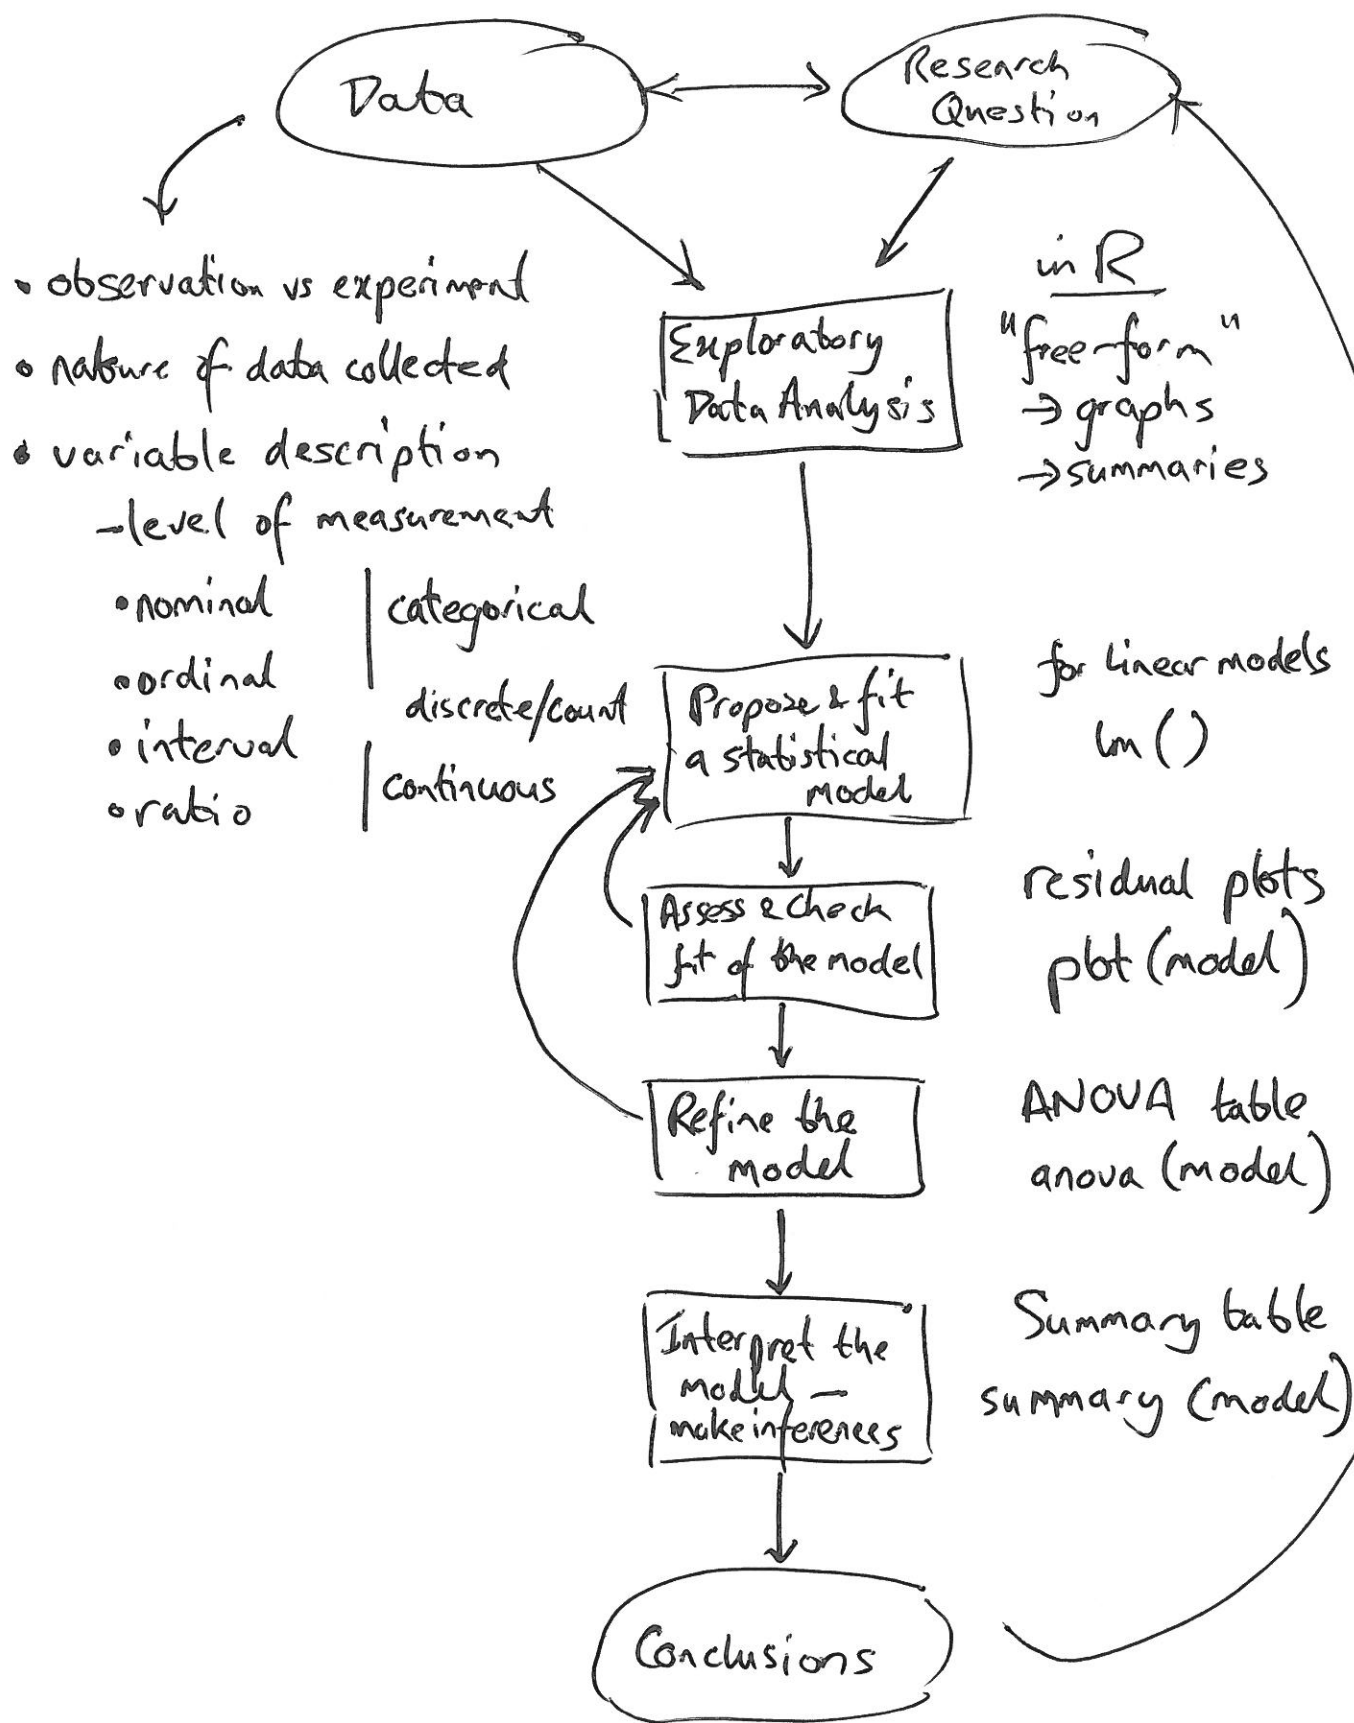 Data
Research
Question
• observation vs experiment
• nature of data collected
• variable description
- level of measurement
• nominal
• ordinal
categorical
discrete/count
• interval
• ratio
continuous
Exploratory
Data Analysis
in R
"free-form"
→ graphs
→ summaries
Propose & fit
a statistical
model
for linear models
lm ()
Assess & check
fit of the model
residual plots
plot (model)
Refine the
model
ANOVA table
anova (model)
Interpret the
model —
make inferences
Summary table
summary (model)
Conclusions